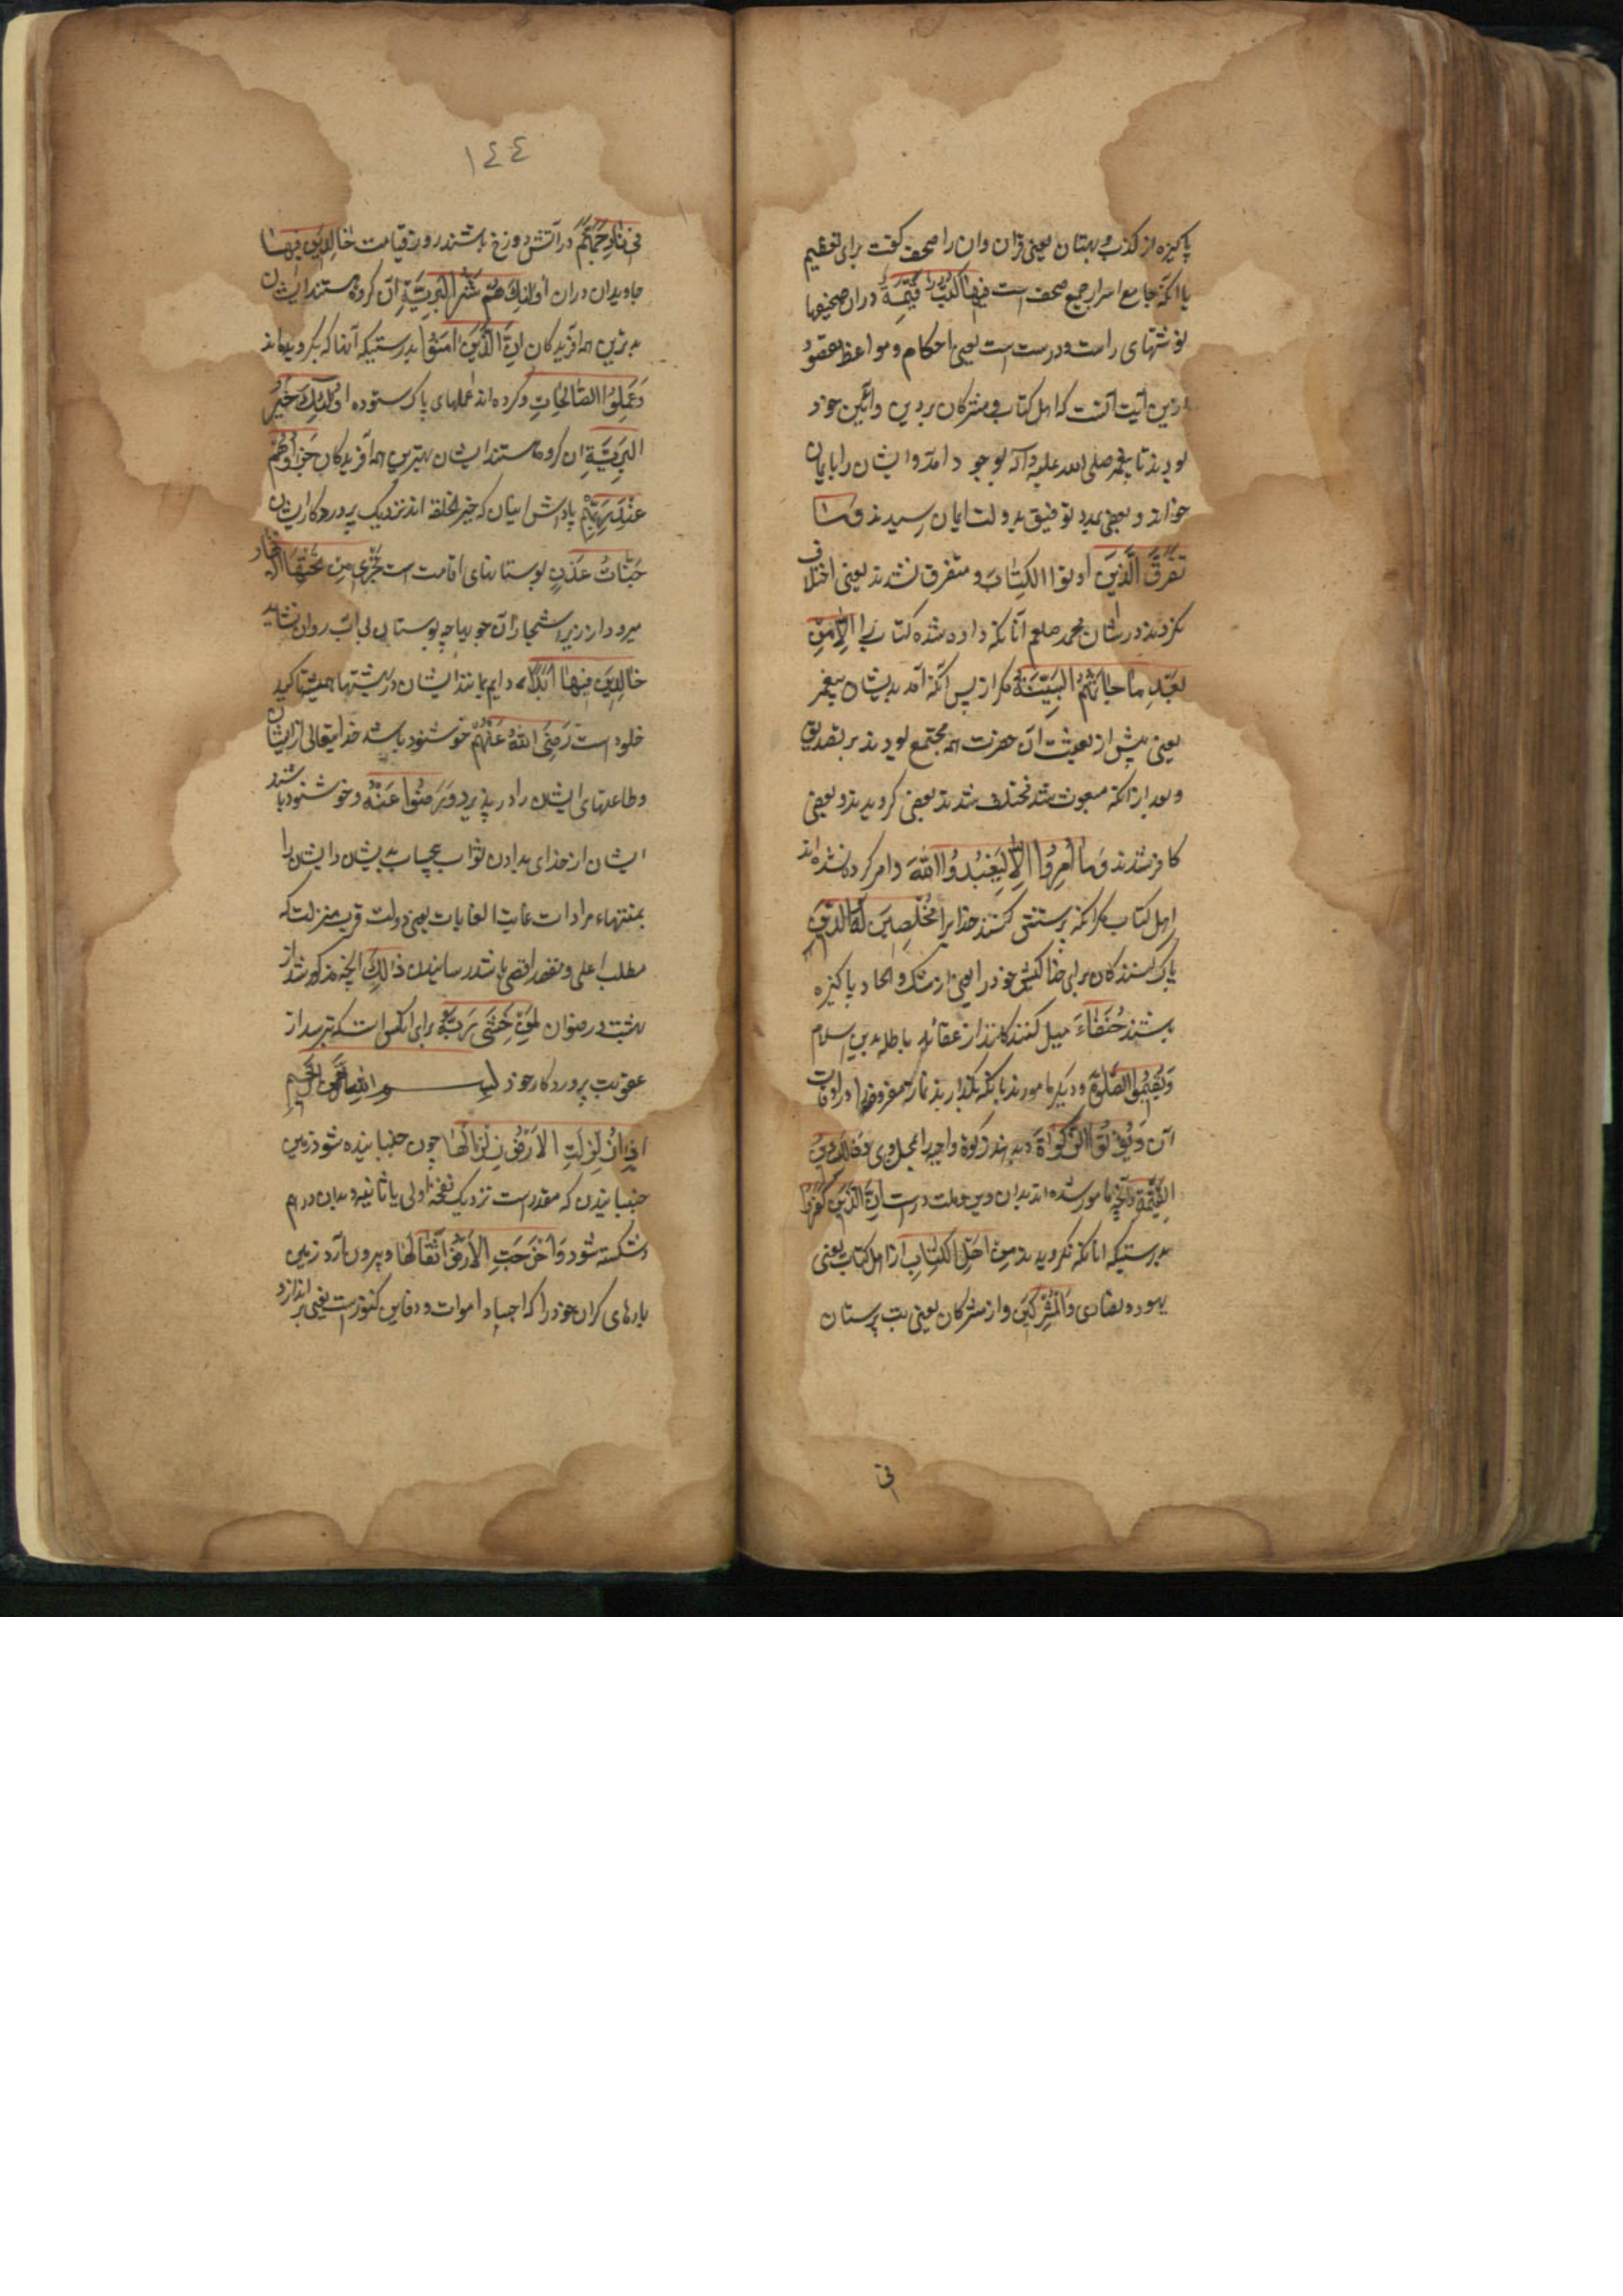 پاکیزه از کذب و بهتان یعنی قران و ان را صحف گفت برای تعظیم
یا انکه جامع اسرار جمیع صحف است فِیهَا کُتُبٌ قَیِّمَةٌ دران صحیفها
نوشتهای راست و درست است یعنی احکام و مواعظ مقصود
ازین آیت آنست که اهل کتاب و مشرکان بر دین و آئین خود
بودند تا پیغمبر صلی الله علیه وآله بوجود آمد و ایشان را بایمان
خواند و بعضی بمدد توفیق بدولت ایمان رسیدند وَمَا
تَفَرَّقَ الَّذِینَ اُوتُوا الکِتَابَ و متفرق نشدند یعنی اختلاف
نکردند در شان محمد صلعم آنانکه داده شده کتاب را اِلَّا مِن
بَعْدِ مَا جَاءَتْهُمُ البَیِّنَةُ مکر از پس آنکه آمد بدیشان پیغمبر
یعنی پیش از بعثت آن حضرت همه مجتمع بودند بر تصدیق
و بعد ازانکه مبعوث شد مختلف شدند بعضی کرویدند و بعضی
کافر شدند وَمَا اُمِرُوا اِلَّا لِیَعْبُدُوا اللهَ و امر کرده نشده اند
اهل کتاب مکر انکه پرستش کنند خدایرا مُخْلِصِینَ لَهُ الدِّینَ
پاک کنندکان برای خدا کیش خود را یعنی از شک و الحاد پاکیزه
باشند حُنَفَاءَ میل کنندکانند از عقائد باطله بدین اسلام
وَیُقِیمُوا الصَّلوٰةَ و دیکر مامورند بانکه بکذارند نماز مفروضه را در اوقات
آن وَیُؤْتُوا الزَّکوٰاةَ و بدهند زکوة واجبه را بمحل وی وَذٰلِکَ دِینُ
القَیِّمَةِ و آنچه مامور شده اند بدان دین و ملت درست اِنَّ الَّذِینَ کَفَرُوا
بدرستیکه انانکه نکرویدند مِنْ اَهْلِ الکِتَابِ از اهل کتاب یعنی
یهود و نصاری وَالْمُشْرِکِینَ و از مشرکان یعنی بت پرستان
فی
١٤٤
فِی نَارِ جَهَنَّمَ در آتش دوزخ باشند روز قیامت خَالِدِینَ فِیهَا
جاویدان دران اُولٰئِکَ هُمْ شَرُّ الْبَرِیَّةِ آن کروه هستند ایشان
بدترین همه آفریدکان اِنَّ الَّذِینَ اٰمَنُوا بدرستیکه آنانکه بکرویده اند
وَعَمِلُوا الصَّالِحَاتِ و کرده اند عملهای پاک ستوده اُولٰئِکَ هُمْ خَیْرُ
البَرِیَّةِ ان کروه هستند ایشان بهترین همه آفریدکان جَزَاؤُهُمْ
عِنْدَ رَبِّهِمْ پاداش اینان که خیر الخلقه اند نزدیک پروردکار ایشان
جَنَّاتُ عَدْنٍ بوستانهای اقامت است تَجْرِی مِنْ تَحْتِهَا الاَنْهَار
میرود از زیر اشجار آن جویها چه بوستان بی آب روان نشاید
خَالِدِینَ فِیهَا اَبَدًا دایم بمانند ایشان در بهشتها همیشه تاکید
خلود است رَضِیَ اللهُ عَنْهُمْ خوشنود باشد خدایتعالی از ایشان
و طاعتهای ایشان را در پذیرد وَرَضُوا عَنْهُ و خوشنود باشند
ایشان از خدای بدادن ثواب بیحساب بدیشان و ایشان را
بمنتهاء مرادات غایت الغایات یعنی دولت قرب منزلت که
مطلب اعلی و مقصد اقصی باشد رسانیدن ذٰلِکَ آنچه مذکور شد از
بهشت و رضوان لِمَنْ خَشِیَ رَبَّهُ برای انکس است که بترسد از
عقوبت پروردکار خود بسم الله الرحمن الرحیم
اِذَا زُلْزِلَتِ الاَرْضُ زِلْزَالَهَا چون جنبانیده شود زمین
جنبانیدن که مقدرست نزدیک نفخه اولی یا ثانیه و بدان درهم
شکسته شود وَاَخْرَجَتِ الاَرْضُ اَثْقَالَهَا و بیرون آرد زمین
بارهای کران خود را که اجساد اموات و دفاین کنوزست یعنی بر اندازد